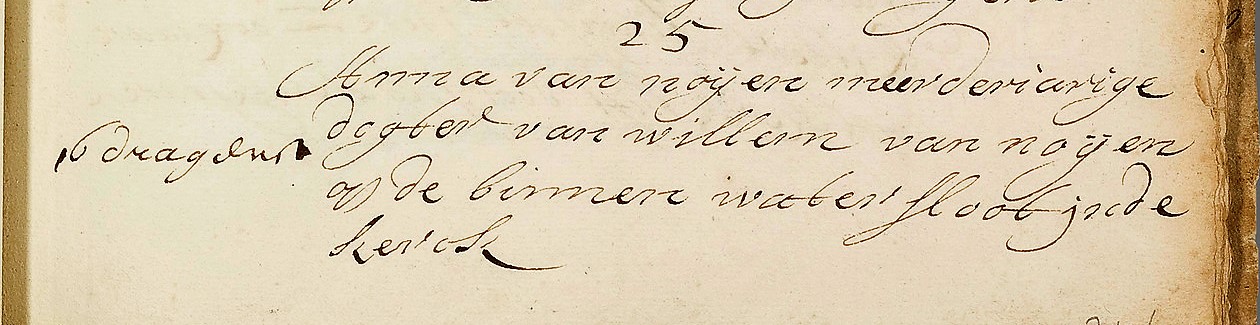 25
Anna van noijen meerderiarige
dogter van willem van noijen
16 dragers
op de binnen water sloot inde
kerck